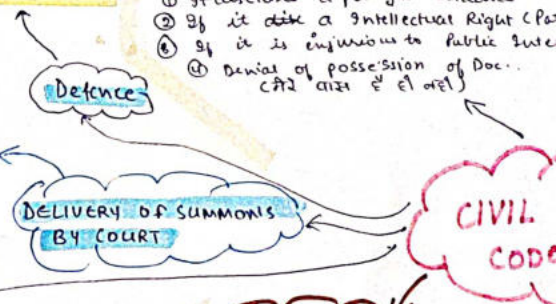 ② If it disc a Intellectual Right (Pa
③ If it is injurious to Public Inte
④ Denial of possession of Doc..
(मेरे पास है ही नहीं)
Defence
DELIVERY OF SUMMONS
BY COURT
CIVIL
CODE